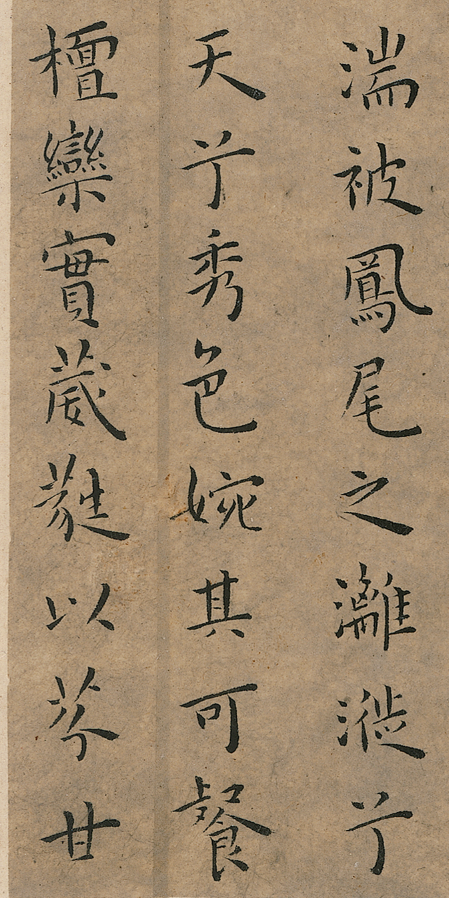 湍被鳳尾之灕漇兮
天兮秀色婉其可餐
檀欒實葳蕤以芬甘